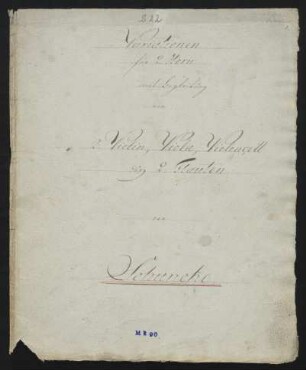 222
Variationen
für 2 Horn
mit Begleitung
von
2 Violin, Viola, Violoncell
2 Flauten
von
Schuncke
M B 90.